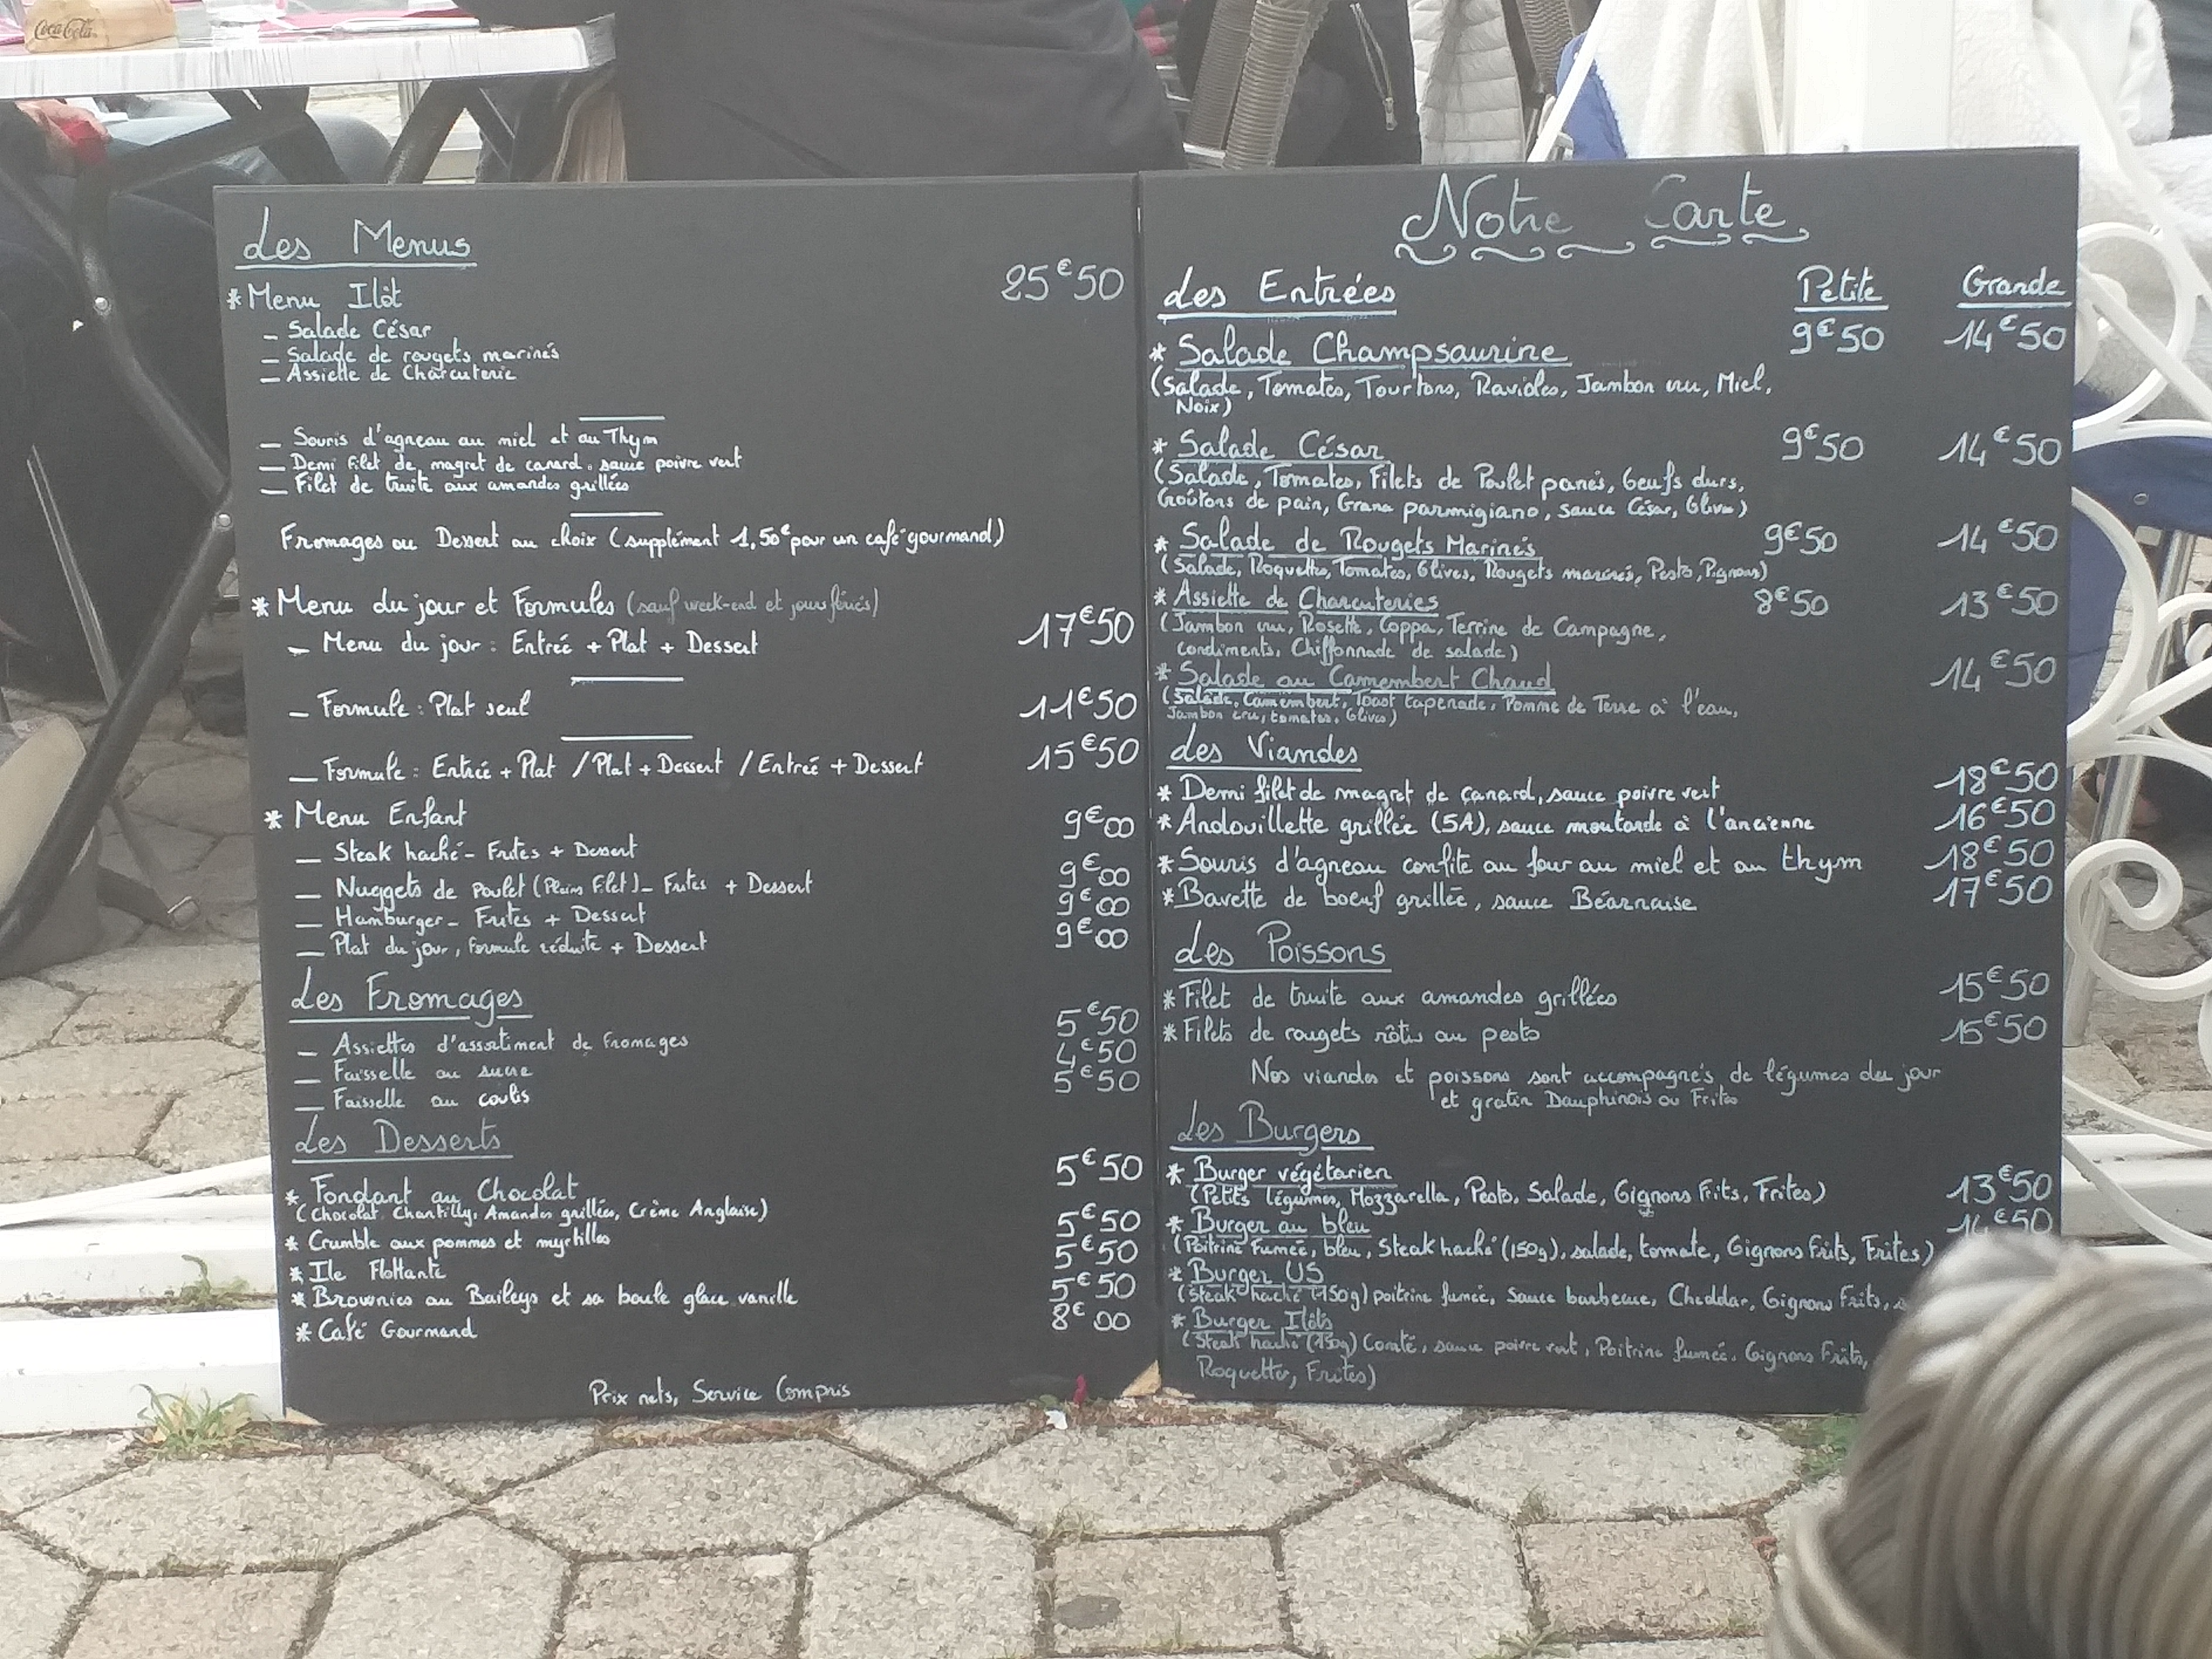 Coca-Cola
Les Menus
25€50
* Menu Ilôt
_ Salade César
_ Salade de rougets marinés
_ Assiette de Charcuterie
_ Souris d'agneau au miel et au Thym
_ Demi filet de magret de canard, sauce poivre vert
_ Filet de truite aux amandes grillées
Fromages ou Dessert au choix (supplément 1,50€ pour un café gourmand)
* Menu du jour et Formules (sauf week-end et jours fériés)
_ Menu du jour : Entrée + Plat + Dessert 17€50
_ Formule : Plat seul 11€50
_ Formule : Entrée + Plat / Plat + Dessert / Entrée + Dessert 15€50
* Menu Enfant
_ Steak haché - Frites + Dessert 9€00
_ Nuggets de Poulet (Plein Filet) - Frites + Dessert 9€00
_ Hamburger - Frites + Dessert 9€00
_ Plat du jour, formule réduite + Dessert 9€00
Les Fromages
_ Assiettes d'assortiment de fromages 5€50
_ Faisselle au sucre 4€50
_ Faisselle au coulis 5€50
Les Desserts
* Fondant au Chocolat 5€50
(Chocolat, Chantilly, Amandes grillées, Crème Anglaise)
* Crumble aux pommes et myrtilles 5€50
* Ile Flottante 5€50
* Brownies au Baileys et sa boule glace vanille 5€50
* Café Gourmand 8€00
Prix nets, Service Compris
Notre Carte
Les Entrées Petite Grande
* Salade Champsaurine 9€50 14€50
(Salade, Tomates, Tourtons, Ravioles, Jambon cru, Miel,
Noix)
* Salade César 9€50 14€50
(Salade, Tomates, Filets de Poulet panés, Oeufs durs,
Croûtons de pain, Grana parmigiano, sauce César, Olives)
* Salade de Rougets Marinés 9€50 14€50
(Salade, Roquette, Tomates, Olives, Rougets marinés, Pesto, Pignons)
* Assiette de Charcuteries 8€50 13€50
(Jambon cru, Rosette, Coppa, Terrine de Campagne,
condiments, Chiffonnade de salade)
* Salade au Camembert Chaud 14€50
(Salade, Camembert, Toast tapenade, Pomme de Terre à l'eau,
Jambon cru, tomates, Olives)
Les Viandes
* Demi filet de magret de canard, sauce poivre vert 18€50
* Andouillette grillée (5A), sauce moutarde à l'ancienne 16€50
* Souris d'agneau confite au four au miel et au thym 18€50
* Bavette de boeuf grillée, sauce Béarnaise 17€50
Les Poissons
* Filet de truite aux amandes grillées 15€50
* Filets de rougets rôtis au pesto 15€50
Nos viandes et poissons sont accompagnés de légumes du jour
et gratin Dauphinois ou Frites
Les Burgers
* Burger végétarien 13€50
(Petits légumes, Mozzarella, Pesto, Salade, Oignons Frits, Frites)
* Burger au bleu 14€50
(Poitrine Fumée, bleu, Steak haché (150g), salade, tomate, Oignons Frits, Frites)
* Burger US
(Steak haché (150g) poitrine fumée, Sauce barbecue, Cheddar, Oignons Frits,
* Burger Ilôts
(Steak haché (150g) Comté, sauce poivre vert, Poitrine fumée, Oignons Frits,
Roquette, Frites)